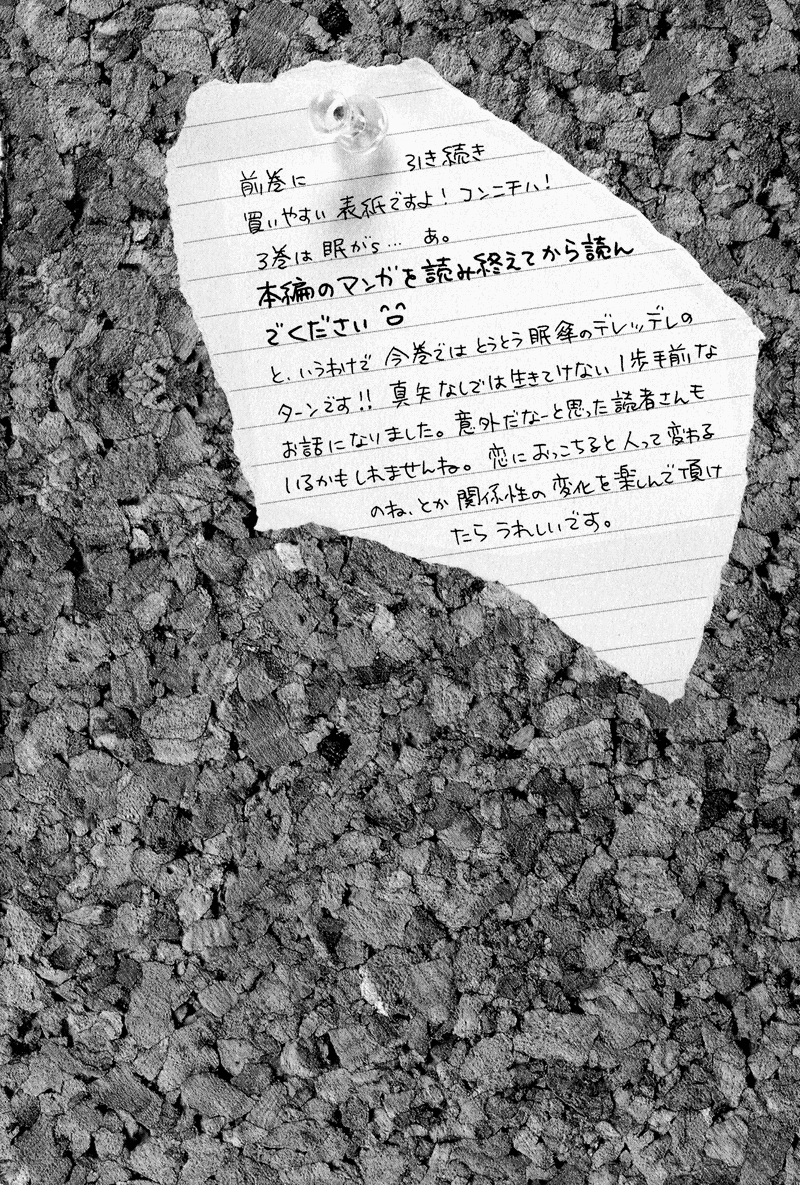 前巻に 引き続き
買いやすい 表紙ですよ！コンニチハ！
3巻は 眠がs… あ。
本編のマンガを読み終えてから読ん
でください
と、いうわけで 今巻では とうとう 眠傘のデレッデレの
ターンです!! 真矢なしでは生きてけない 1歩手前な
お話になりました。意外だなーと思った読者さんも
いるかもしれませんね。恋におっこちると人って変わる
のね、とか 関係性の変化を楽しんで頂け
たら うれしいです。